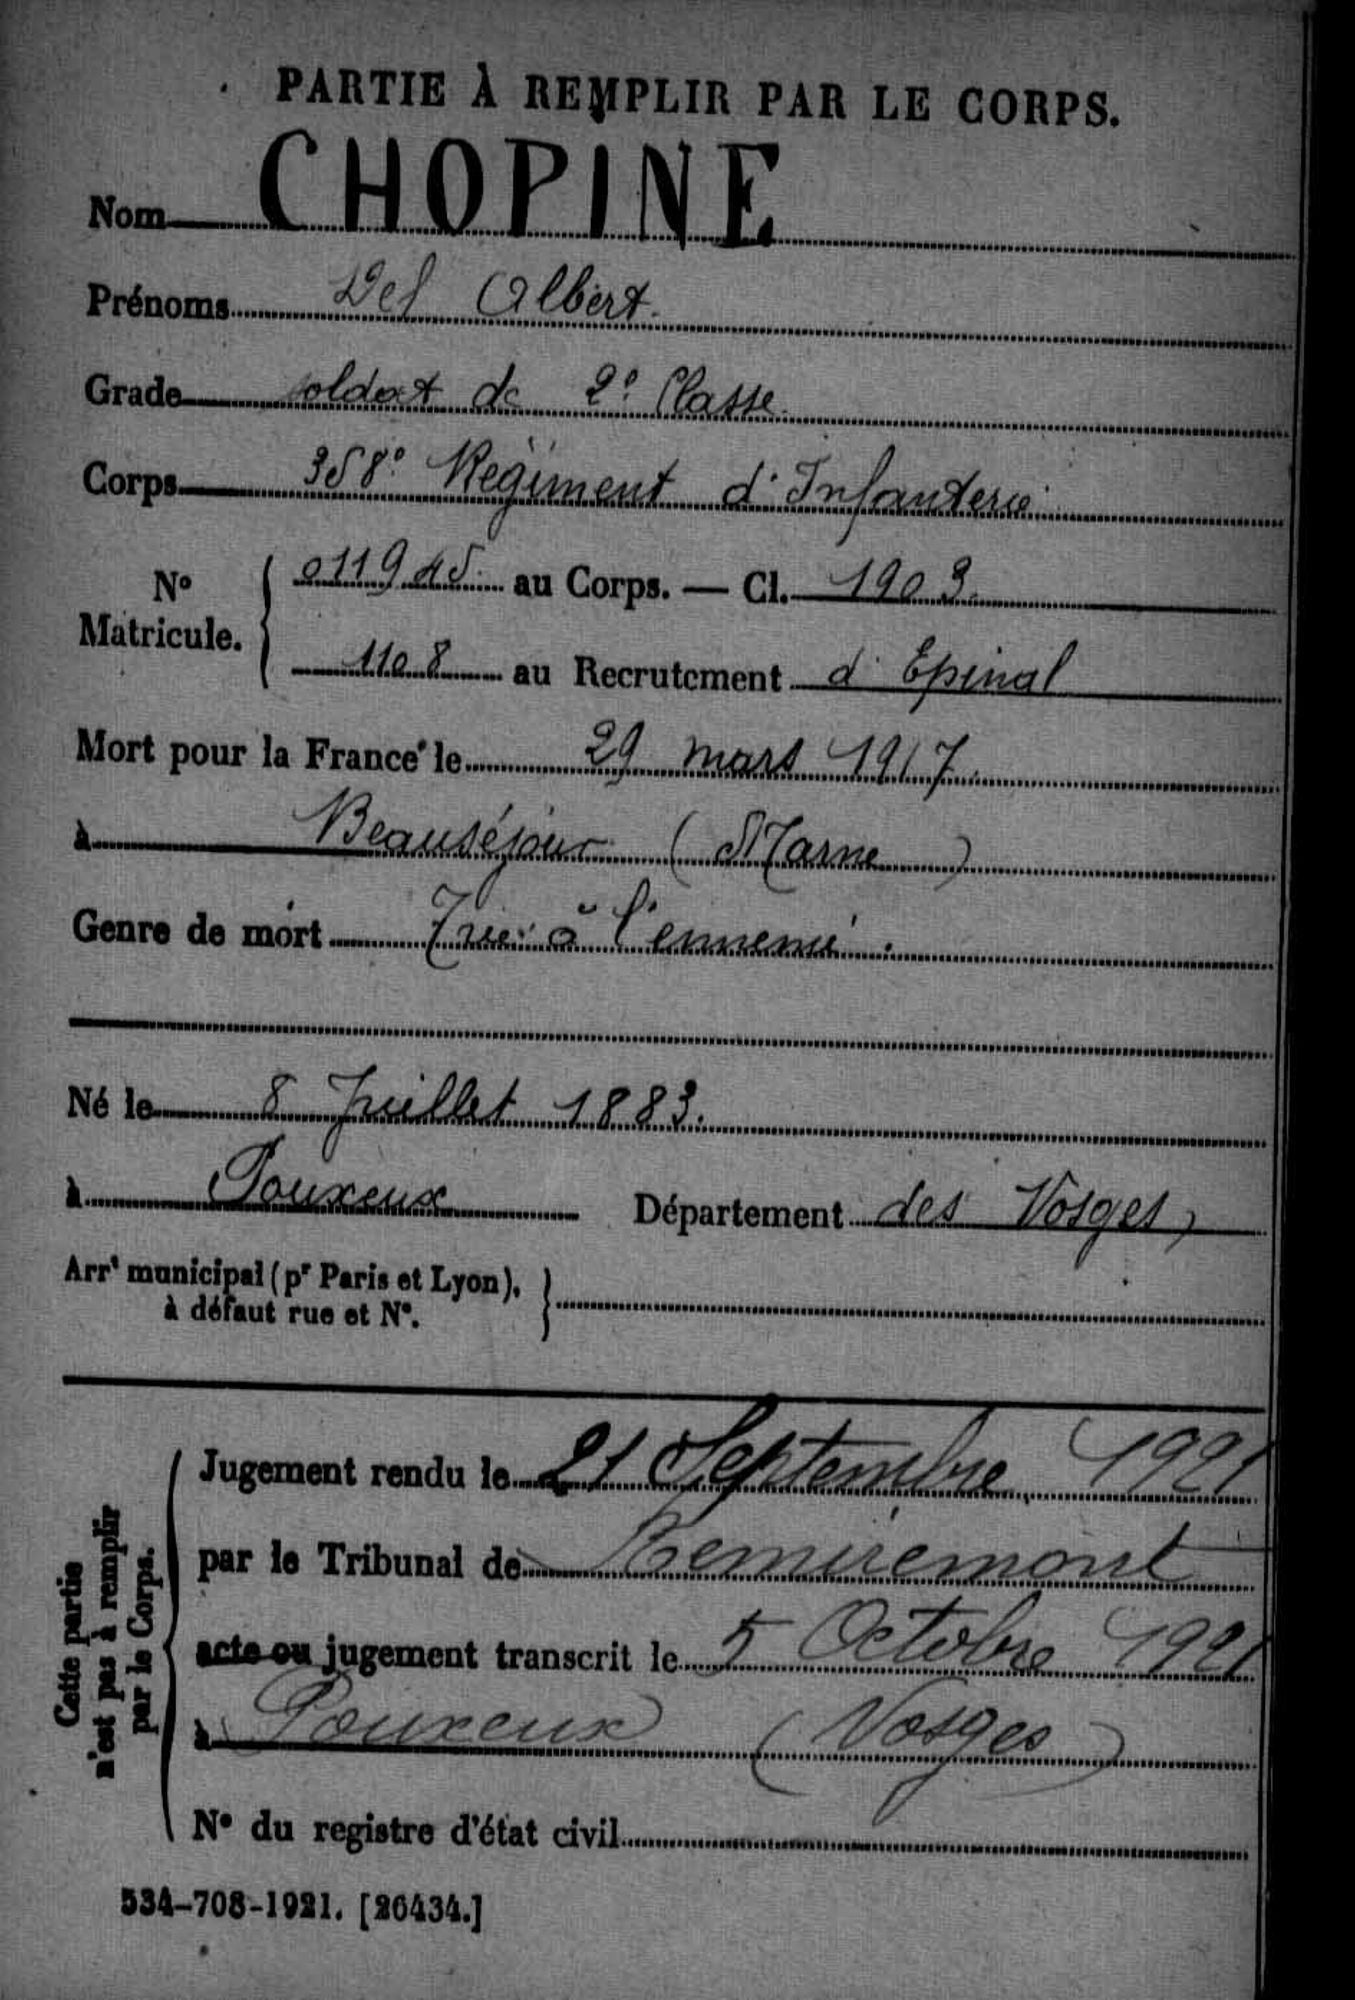 PARTIE À REMPLIR PAR LE CORPS.
Nom CHOPINE
Prénoms Albert.
Grade soldat de 2e Classe.
Corps 358e Régiment d'Infanterie
No Matricule. 011945 au Corps. — Cl. 1903.
1108 au Recrutement d'Epinal
Mort pour la France le 29 mars 1917.
à Beauséjour (Marne)
Genre de mort Tué à l'ennemi.
Né le 8 Juillet 1883.
à Pouxeux Département des Vosges,
Arrt municipal (pr Paris et Lyon), à défaut rue et No.
Cette partie n'est pas à remplir par le Corps.
Jugement rendu le 21 Septembre 1921
par le Tribunal de Remiremont
acte ou jugement transcrit le 5 Octobre 1921
à Pouxeux (Vosges)
No du registre d'état civil
534-708-1921. [26434.]